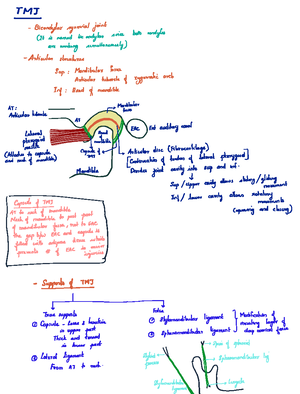 TMJ
- Bicondylar synovial joint
(It is named bi condylar since both condyles
are working simultaneously)
- Articular structures
Sup : Mandibular fossa
Articular tubercle of zygomatic arch
Inf : Head of mandible
AT :
Articular tubercle
Mandibular
fossa
EAC
Ext auditory canal
Lateral
pterygoid
muscle
(Attaches to capsule
and neck of mandible)
Head
of
mandible
Capsule
of TMJ
Articular disc (Fibrocartilage)
[Continuation of tendon of lateral pterygoid]
Divides joint cavity into sup and inf.
Sup/upper cavity allows sliding/gliding
movement
Inf/lower cavity allows rotatory
movements
(opening and closing)
Mandible
Capsule of TMJ
AT to neck of mandible.
Neck of mandible to post part
of mandibular fossa, next to EAC
the gap b/w EAC and capsule is
filled with adipose tissue which
prevents of EAC in
- Supports of TMJ
True supports
① Capsule - Loose &
in upper part
Thick and
in lower part
② Lateral ligament
From AT to neck.
False
① Stylomandibular ligament
② Sphenomandibular ligament
Modification of
investing layer of
deep cervical fascia
Styloid
process
Spine of sphenoid
Sphenomandibular lig
Stylomandibular
Lingula